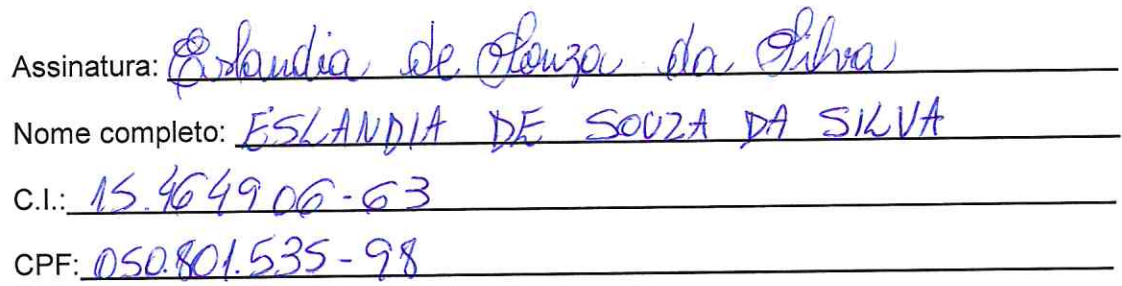 Assinatura: Eslandia de Souza da Silva
Nome completo: ESLANDIA DE SOUZA DA SILVA
C.I.: 15.464906-63
CPF: 050.801.535-98